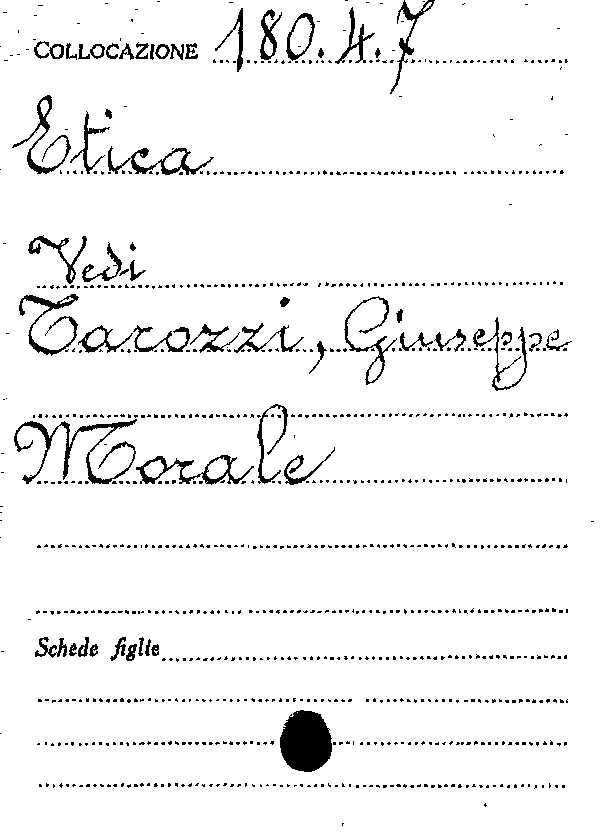 COLLOCAZIONE 180.4.7
Etica
Vedi
Tarozzi, Giuseppe
Morale
Schede figlie